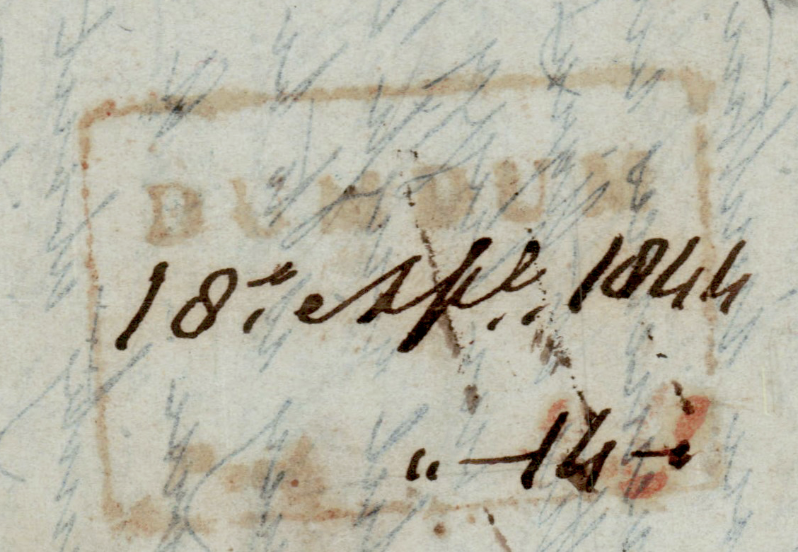 DUMDUM
18th Apl 1844
" — 14 —